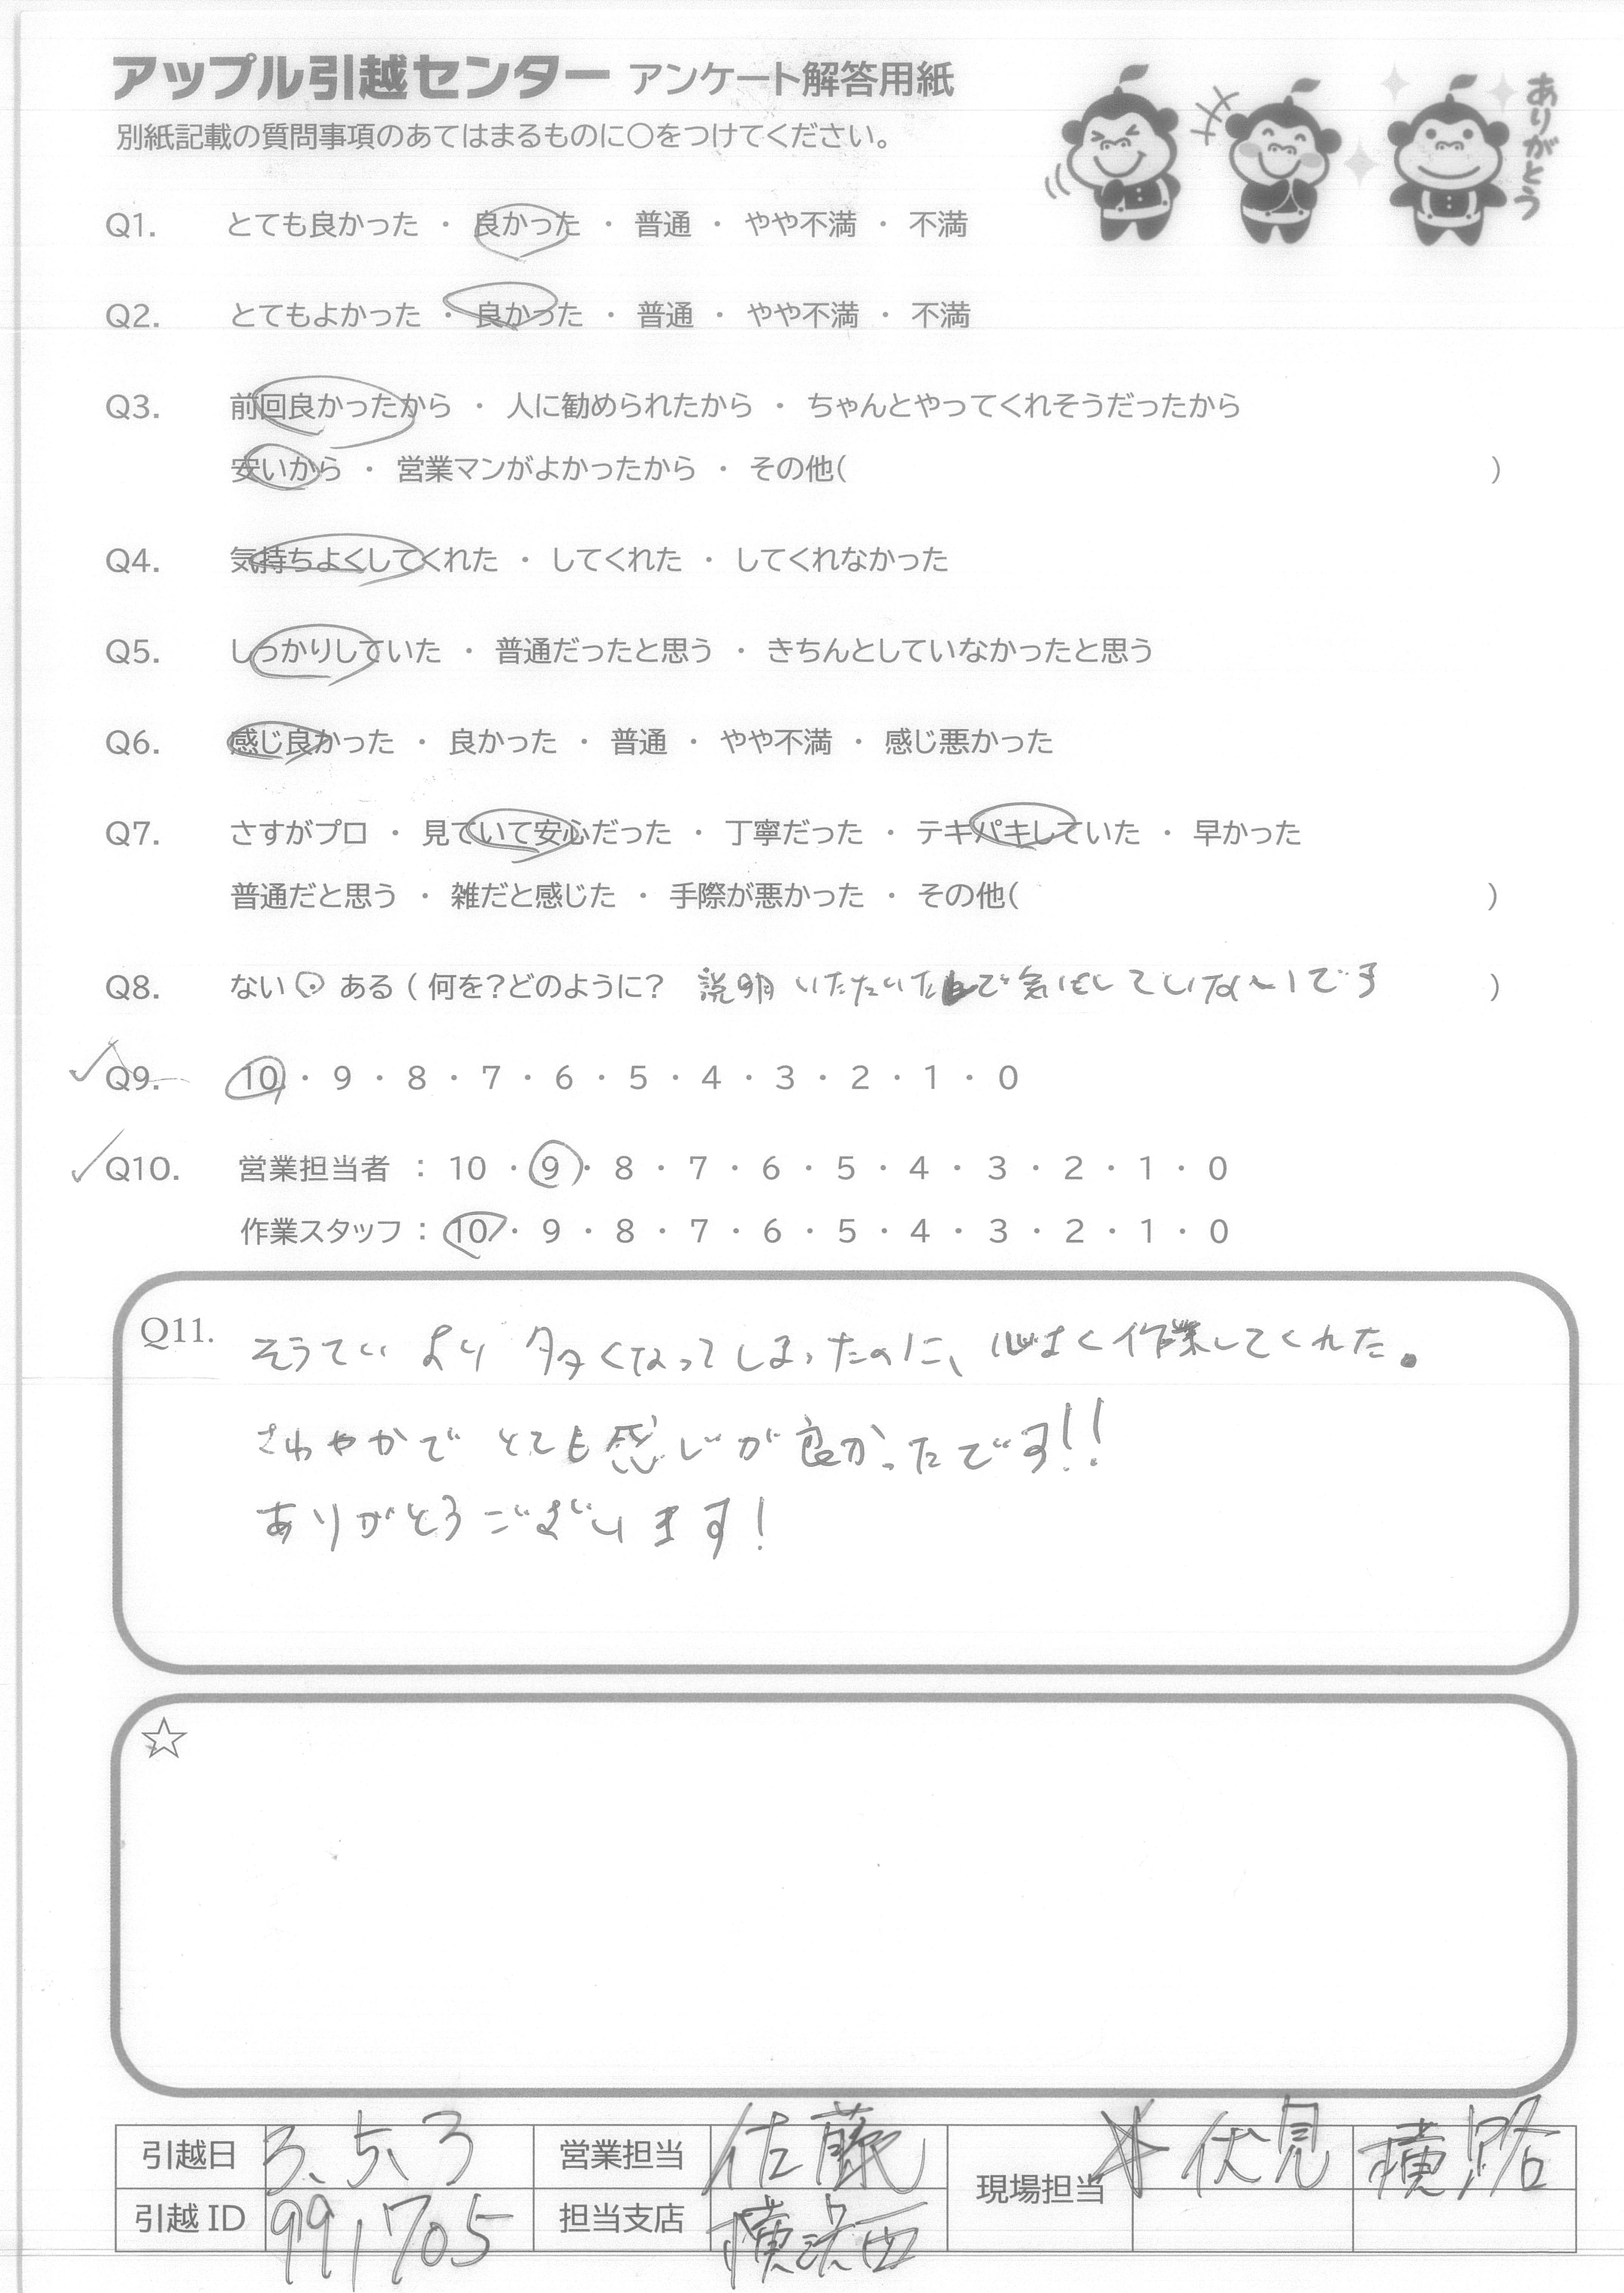 アップル引越センター アンケート解答用紙
別紙記載の質問事項のあてはまるものに○をつけてください。
ありがとう
Q1. とても良かった ・ 良かった ・ 普通 ・ やや不満 ・ 不満
Q2. とてもよかった ・ 良かった ・ 普通 ・ やや不満 ・ 不満
Q3. 前回良かったから ・ 人に勧められたから ・ ちゃんとやってくれそうだったから
安いから ・ 営業マンがよかったから ・ その他( )
Q4. 気持ちよくしてくれた ・ してくれた ・ してくれなかった
Q5. しっかりしていた ・ 普通だったと思う ・ きちんとしていなかったと思う
Q6. 感じ良かった ・ 良かった ・ 普通 ・ やや不満 ・ 感じ悪かった
Q7. さすがプロ ・ 見ていて安心だった ・ 丁寧だった ・ テキパキしていた ・ 早かった
普通だと思う ・ 雑だと感じた ・ 手際が悪かった ・ その他( )
Q8. ない ・ ある ( 何を?どのように? 説明いただいたので気にしていないです )
Q9. 10 ・ 9 ・ 8 ・ 7 ・ 6 ・ 5 ・ 4 ・ 3 ・ 2 ・ 1 ・ 0
Q10. 営業担当者 : 10 ・ 9 ・ 8 ・ 7 ・ 6 ・ 5 ・ 4 ・ 3 ・ 2 ・ 1 ・ 0
作業スタッフ : 10 ・ 9 ・ 8 ・ 7 ・ 6 ・ 5 ・ 4 ・ 3 ・ 2 ・ 1 ・ 0
Q11. そうていより多くなってしまったのに、心よく作業してくれた。
さわやかでとても感じが良かったです!!
ありがとうございます!
☆
引越日 3.5.3 営業担当 佐藤 現場担当 伏見 横路
引越ID 991705 担当支店 横浜西